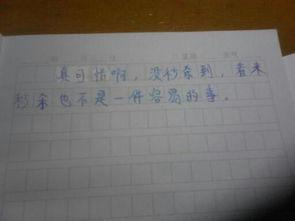 真可惜啊，没秒杀到，看来
秒杀也不是一件容易的事。